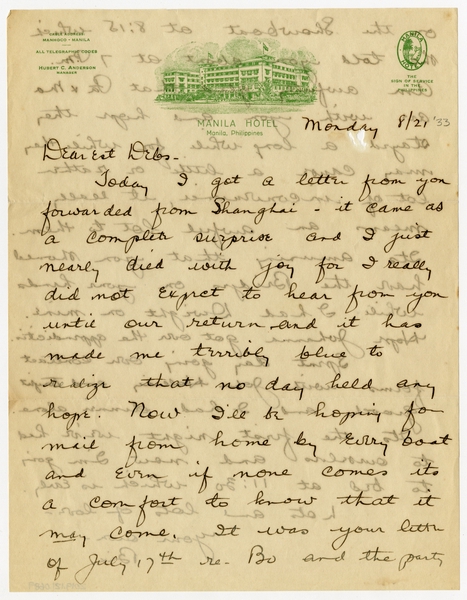 CABLE ADDRESS
MANHOCO - MANILA
ALL TELEGRAPHIC CODES
HUBERT C. ANDERSON
MANAGER
MANILA HOTEL
THE
SIGN OF SERVICE
IN THE
MANILA HOTEL
Manila, Philippines
Monday 8/21 '33
Dearest Debs -
Today I got a letter from you
forwarded from Shanghai - it came as
a complete surprise and I just
nearly died with joy for I really
did not expect to hear from you
until our return and it has
made me terribly blue to
realize that no day held any
hope. Now I'll be hoping for
mail from home by every boat
and even if none comes its
a comfort to know that it
may come. It was your letter
of July 17th re. Bo and the party